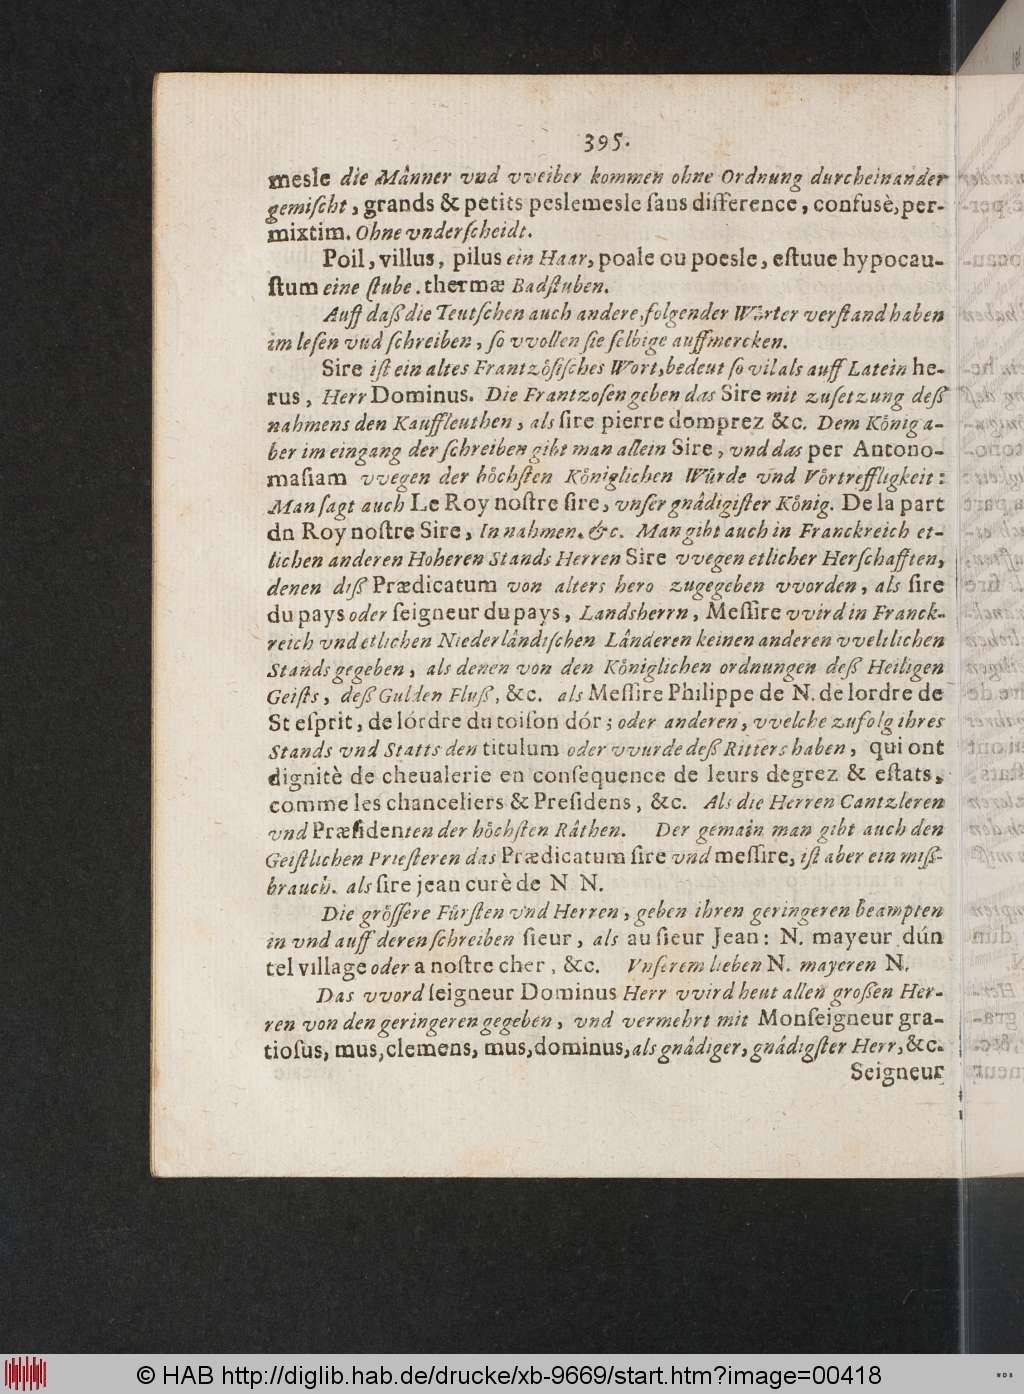 395.
mesle die Männer vnd vveiber kommen ohne Ordnung durcheinander
gemiſcht, grands & petits peslemesle ſans difference, confusè, per-
mixtim. Ohne vnderſcheidt.
Poil, villus, pilus ein Haar, poale ou poesle, eſtuue hypocau-
ſtum eine ſtube. thermæ Badſtuben.
Auff daß die Teutſchen auch andere, folgender Wörter verſtand haben
im leſen vnd ſchreiben, ſo vvollen ſie ſelbige auffmercken.
Sire iſt ein altes Frantzöſiſches Wort, bedeut ſo vil als auff Latein he-
rus, Herr Dominus. Die Frantzoſen geben das Sire mit zuſetzung deß
nahmens den Kauffleuthen, als ſire pierre domprez &c. Dem König a-
ber im eingang der ſchreiben gibt man allein Sire, vnd das per Antono-
maſiam vvegen der höchſten Königlichen Würde vnd Vörtreffligkeit:
Man ſagt auch Le Roy noſtre ſire, vnſer gnådigiſter König. De la part
dn Roy noſtre Sire, In nahmen. &c. Man gibt auch in Franckreich et-
lichen anderen Hoheren Stands Herren Sire vvegen etlicher Herſchafften,
denen diß Prædicatum von alters hero zugegeben vvorden, als ſire
du pays oder ſeigneur du pays, Landsherrn, Meſſire vvird in Franck-
reich vnd etlichen Niederlåndiſchen Låndern keinen anderen vveltlichen
Stands gegeben, als denen von den Königlichen ordnungen deß Heiligen
Geiſts, deß Gulden Fluß, &c. als Meſſire Philippe de N. de lordre de
St eſprit, de lórdre du toiſon dór; oder anderen, vvelche zufolg ihres
Stands vnd Statts den titulum oder vvurde deß Ritters haben, qui ont
dignitè de cheualerie en conſequence de leurs degrez & eſtats,
comme les chanceliers & Preſidens, &c. Als die Herren Cantzleren
vnd Præſidenten der höchſten Råthen. Der gemain man gibt auch den
Geiſtlichen Prieſteren das Prædicatum ſire vnd meſſire, iſt aber ein miſſ-
brauch. als ſire jean curè de N N.
Die gröſſere Fürſten vnd Herren, geben ihren geringeren beampten
in vnd auff deren ſchreiben ſieur, als au ſieur Jean: N. mayeur dún
tel village oder a noſtre cher, &c. Vnſerem lieben N. mayeren N.
Das vvord ſeigneur Dominus Herr vvird heut allen großen Her-
ren von den geringeren gegeben, vnd vermehrt mit Monſeigneur gra-
tioſus, mus, clemens, mus, dominus, als gnådiger, gnådigſter Herr, &c.
Seigneur
© HAB http://diglib.hab.de/drucke/xb-9669/start.htm?image=00418